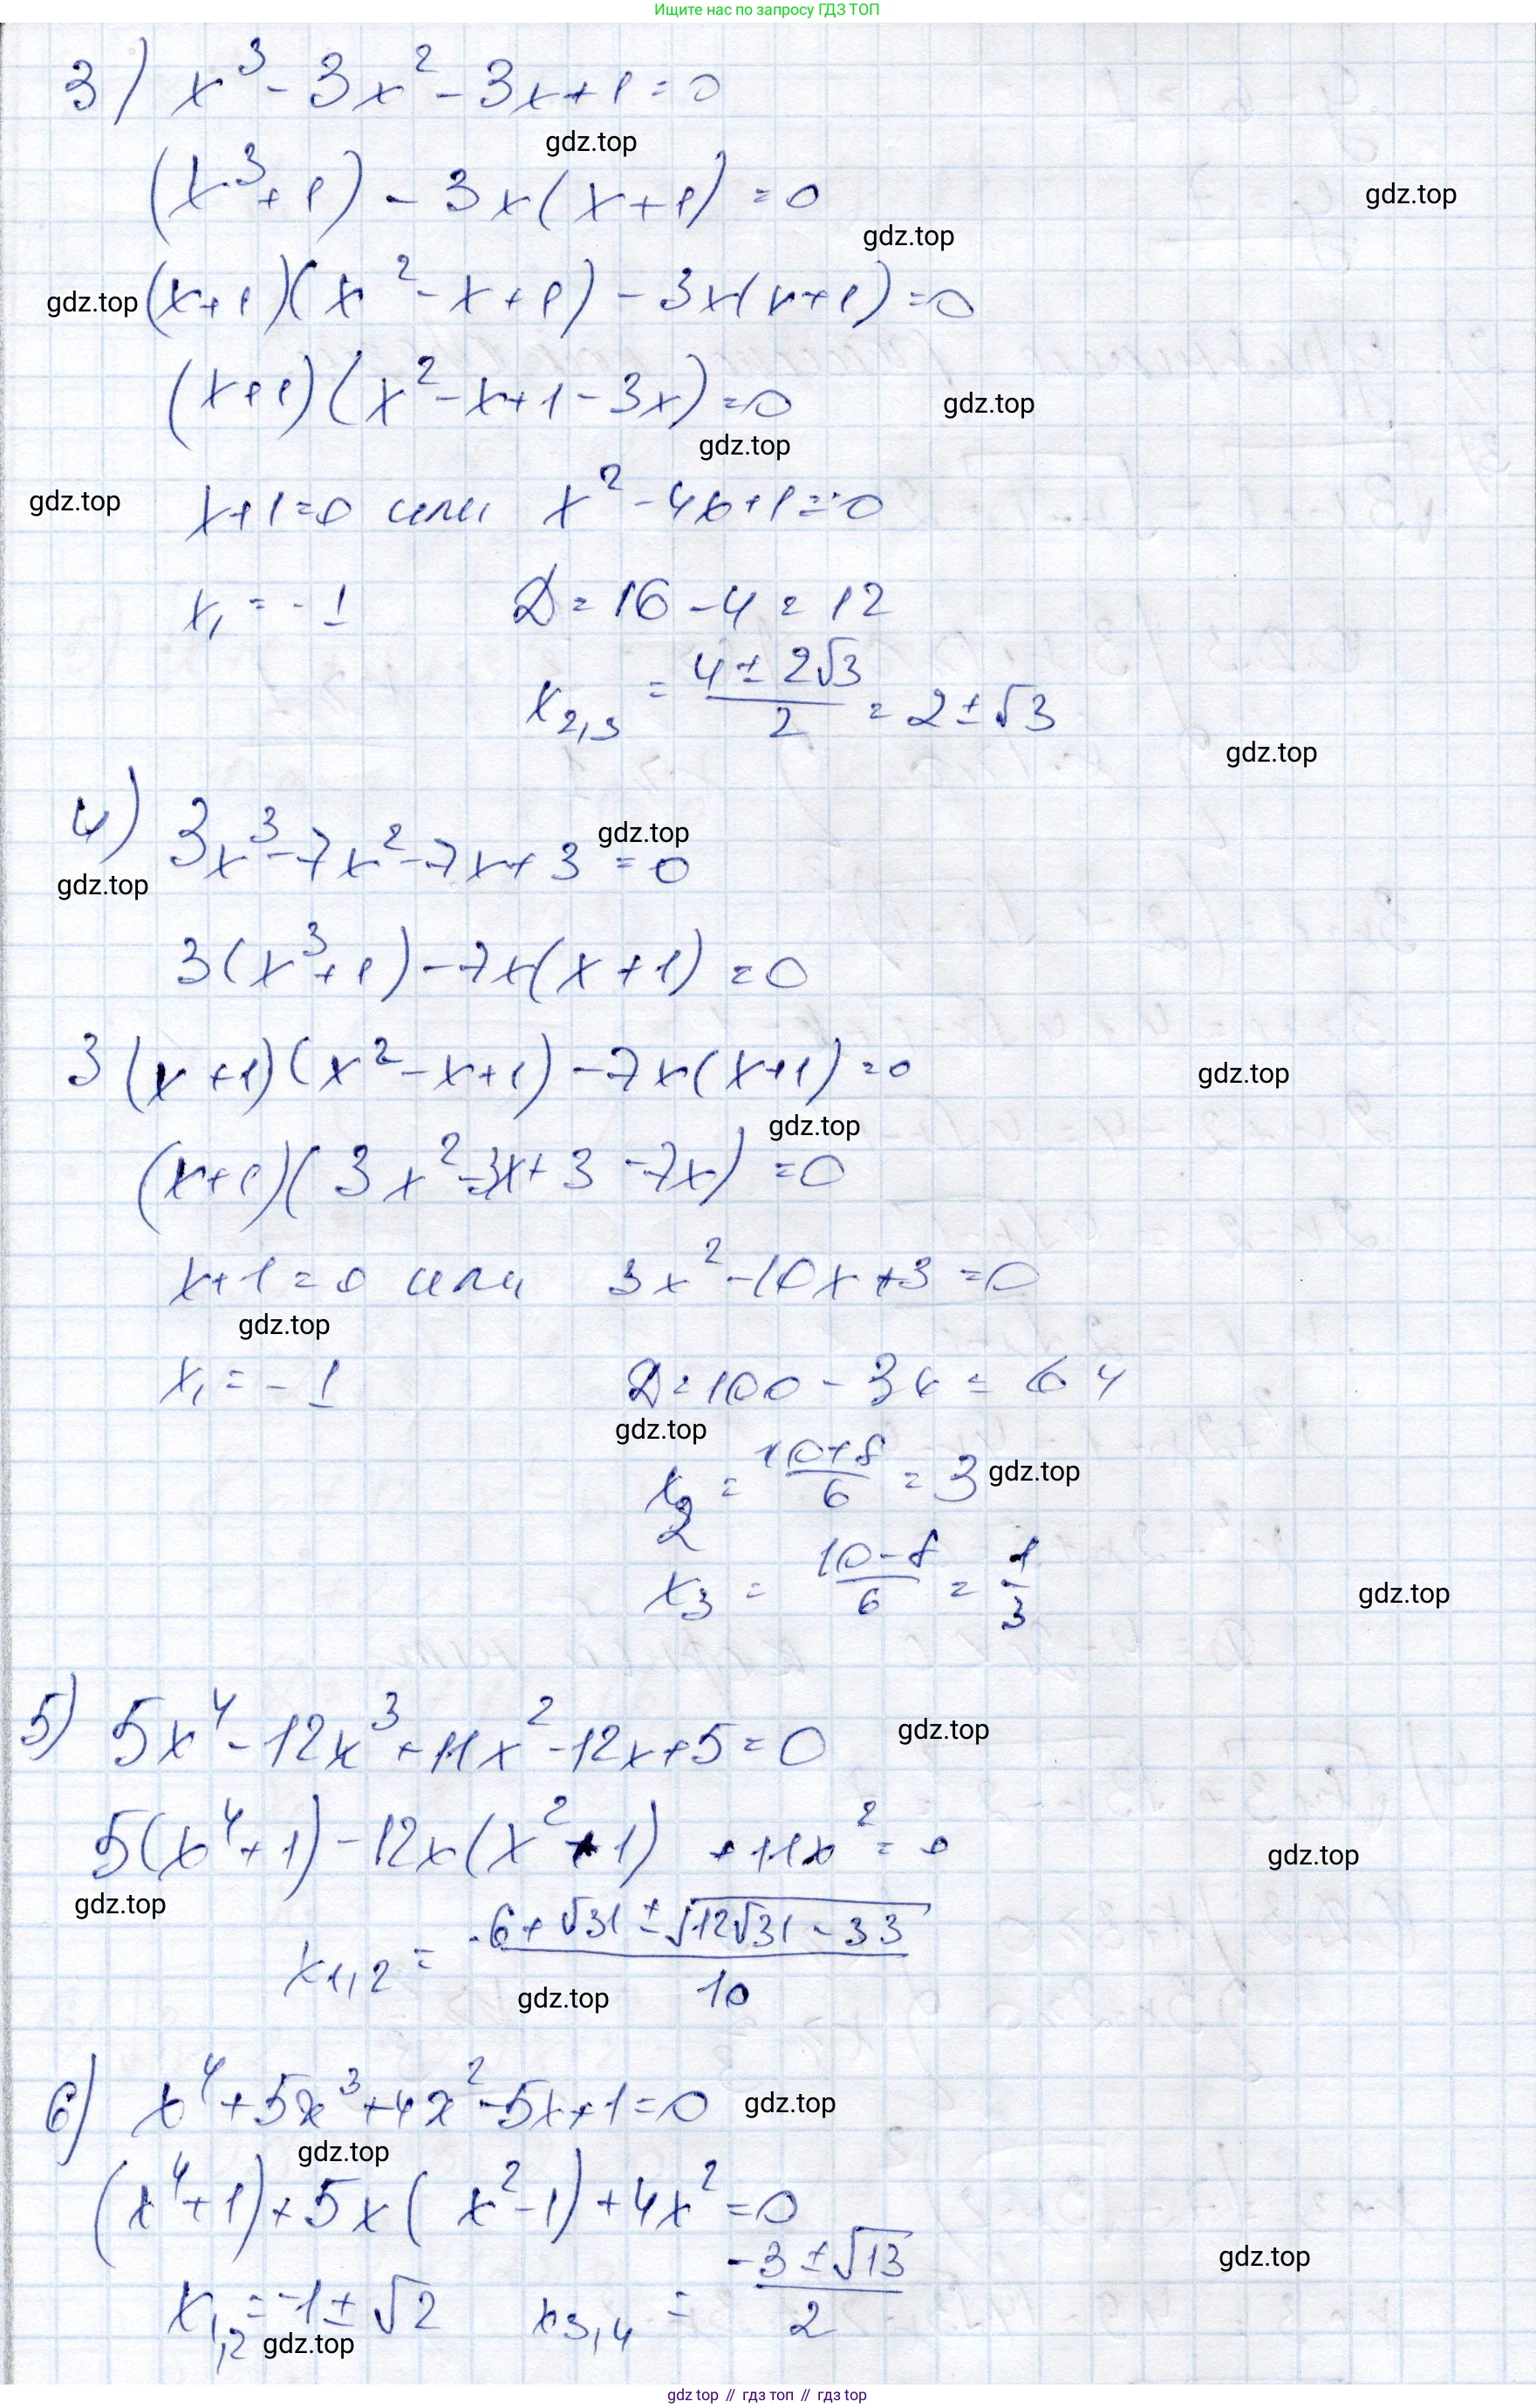 Ищите нас по запросу ГДЗ ТОП
3) x³ - 3x² - 3x + 1 = 0
gdz.top
(x³ + 1) - 3x(x + 1) = 0
gdz.top
gdz.top
gdz.top (x + 1)(x² - x + 1) - 3x(x + 1) = 0
(x + 1)(x² - x + 1 - 3x) = 0
gdz.top
gdz.top
gdz.top x + 1 = 0 или x² - 4x + 1 = 0
x₁ = -1 D = 16 - 4 = 12
x₂,₃ = (4 ± 2√3)/2 = 2 ± √3
gdz.top
4) 3x³ - 7x² - 7x + 3 = 0
gdz.top
gdz.top
3(x³ + 1) - 7x(x + 1) = 0
3(x + 1)(x² - x + 1) - 7x(x + 1) = 0
gdz.top
gdz.top
(x + 1)(3x² - 3x + 3 - 7x) = 0
x + 1 = 0 или 3x² - 10x + 3 = 0
gdz.top
x₁ = -1 D = 100 - 36 = 64
gdz.top
x₂ = (10 + 8)/6 = 3 gdz.top
x₃ = (10 - 8)/6 = 1/3
gdz.top
5) 5x⁴ - 12x³ + 11x² - 12x + 5 = 0
gdz.top
5(x⁴ + 1) - 12x(x² + 1) + 11x² = 0
gdz.top
gdz.top
x₁,₂ = (6 + √31 ± √(12√31 - 33))/10
gdz.top
6) x⁴ + 5x³ + 4x² - 5x + 1 = 0 gdz.top
gdz.top
(x⁴ + 1) + 5x(x² - 1) + 4x² = 0
gdz.top
x₁,₂ = -1 ± √2 x₃,₄ = (-3 ± √13)/2
gdz.top
gdz top // гдз топ // gdz top